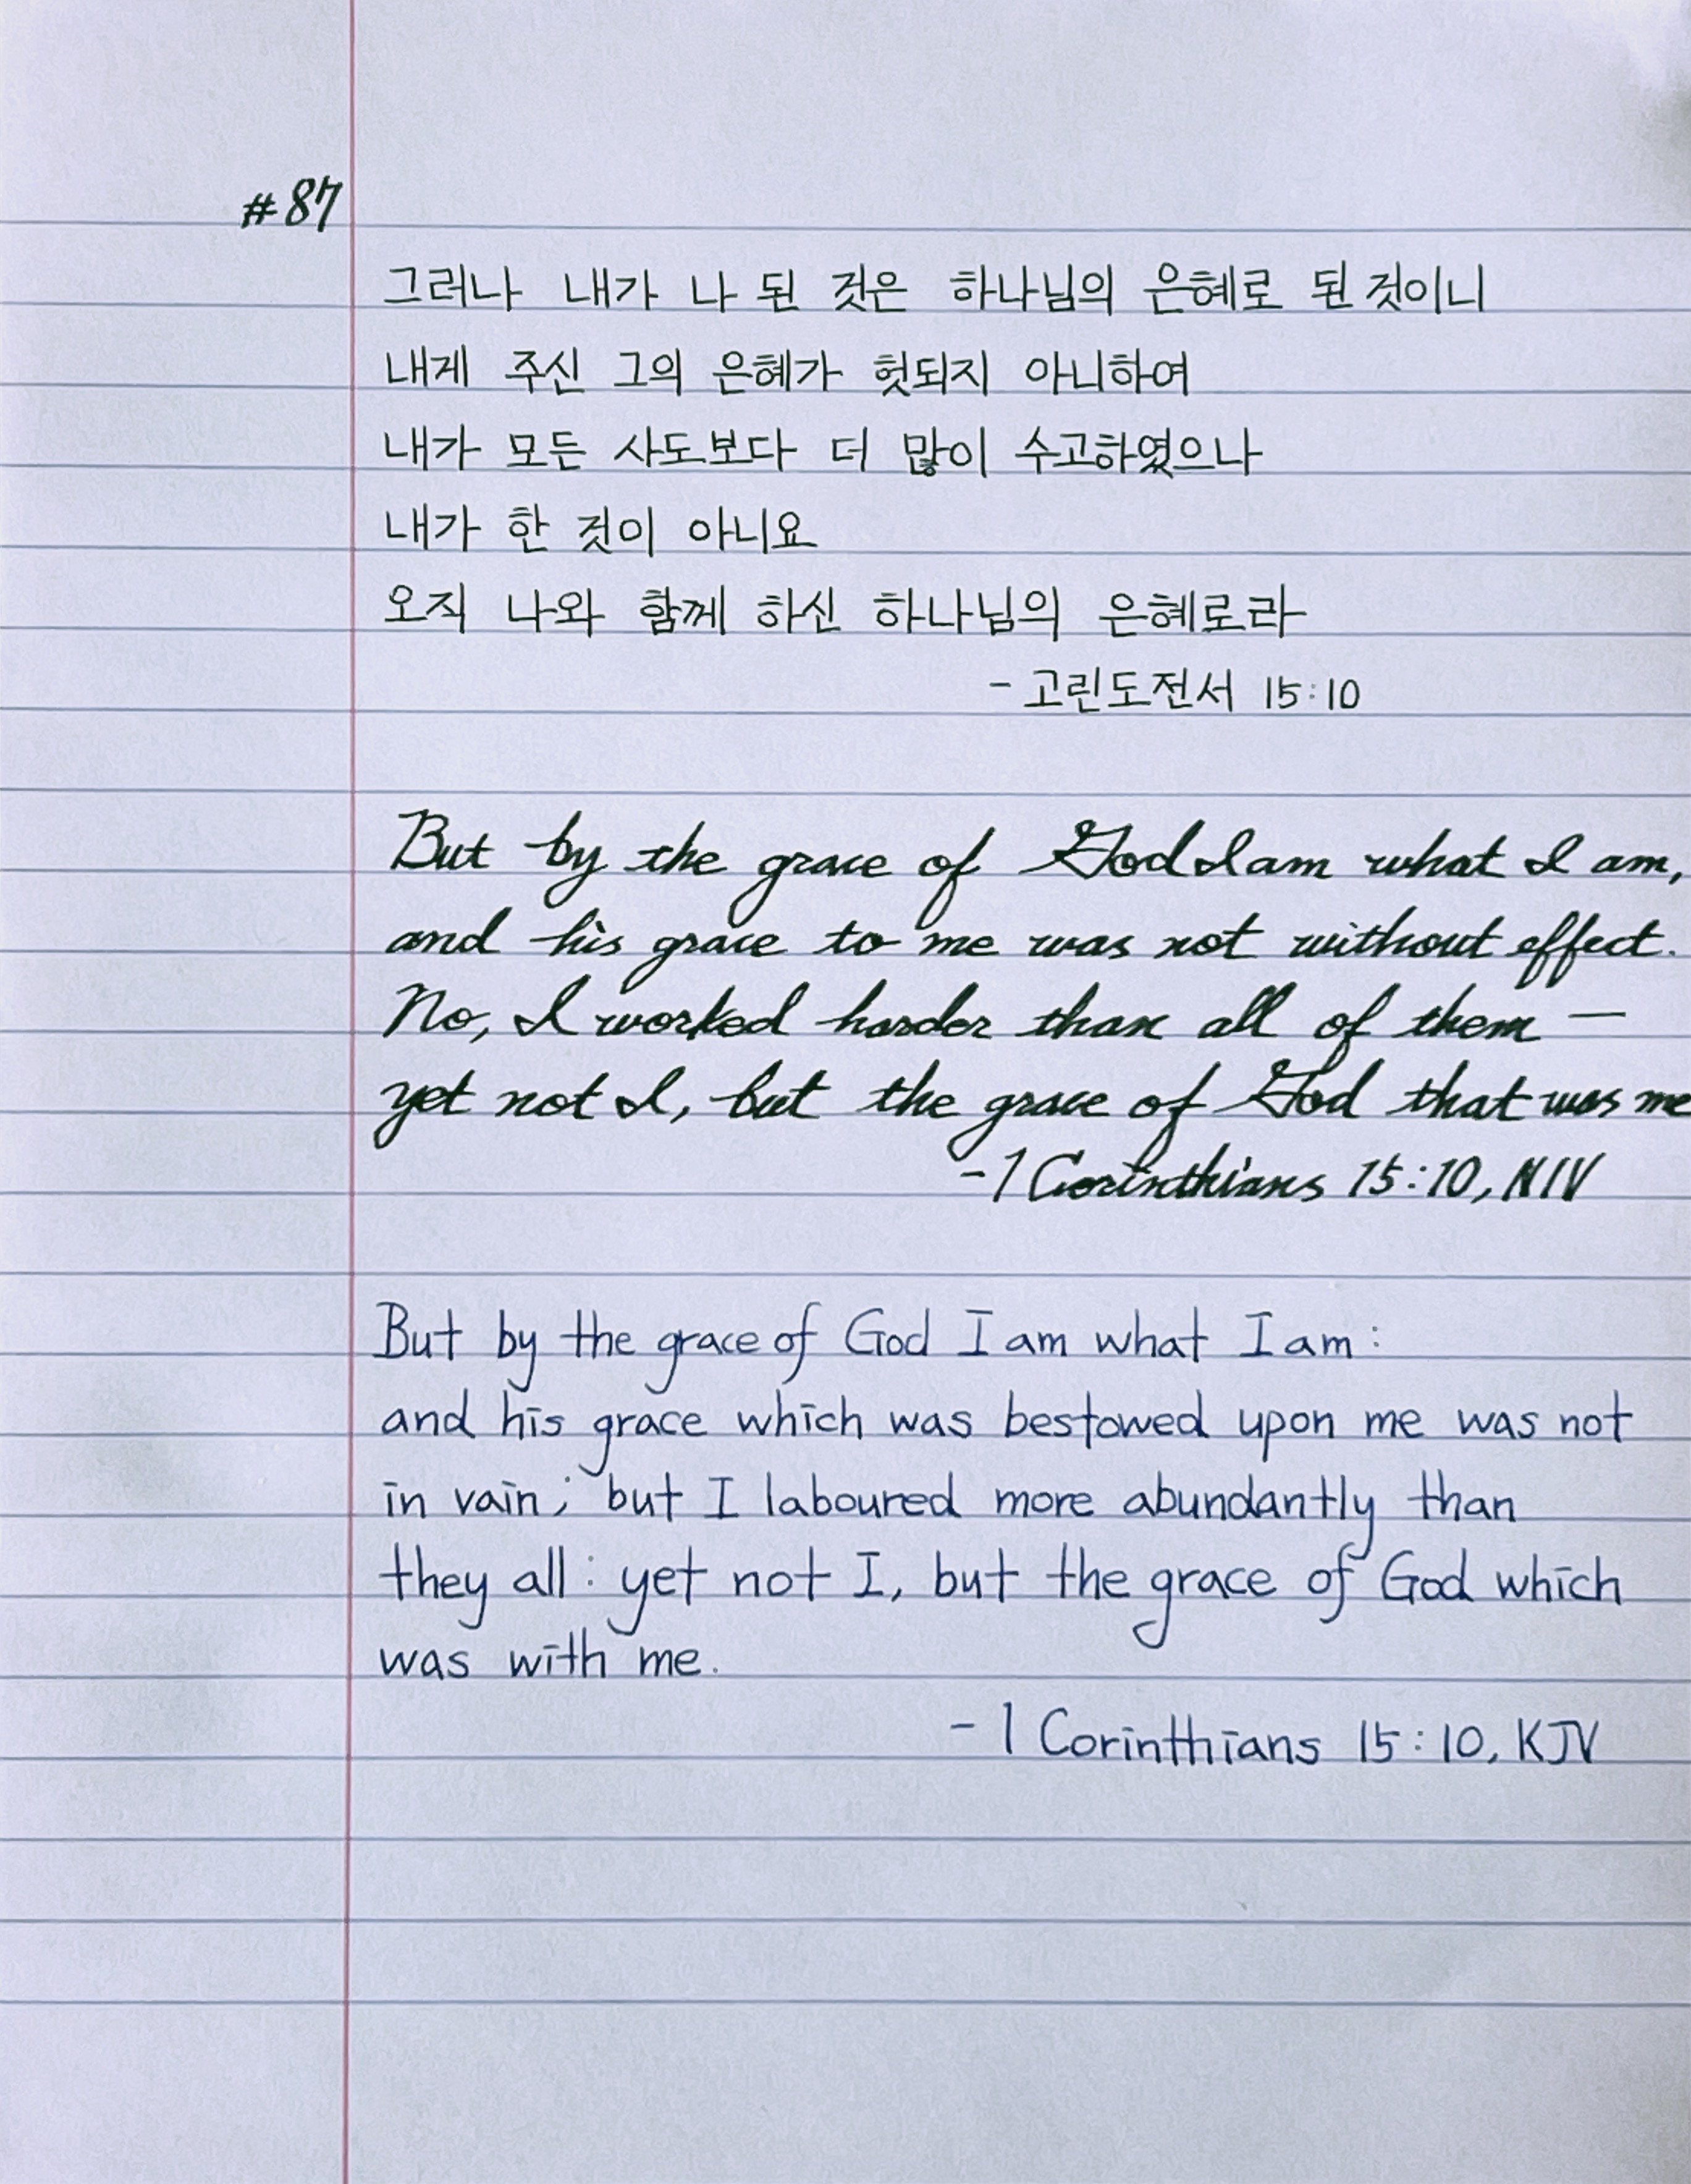 #87
그러나 내가 나 된 것은 하나님의 은혜로 된 것이니
내게 주신 그의 은혜가 헛되지 아니하여
내가 모든 사도보다 더 많이 수고하였으나
내가 한 것이 아니요
오직 나와 함께 하신 하나님의 은혜로라
- 고린도전서 15:10
But by the grace of God I am what I am,
and his grace to me was not without effect.
No, I worked harder than all of them —
yet not I, but the grace of God that was me
- 1 Corinthians 15:10, NIV
But by the grace of God I am what I am:
and his grace which was bestowed upon me was not
in vain; but I laboured more abundantly than
they all: yet not I, but the grace of God which
was with me.
- 1 Corinthians 15:10, KJV